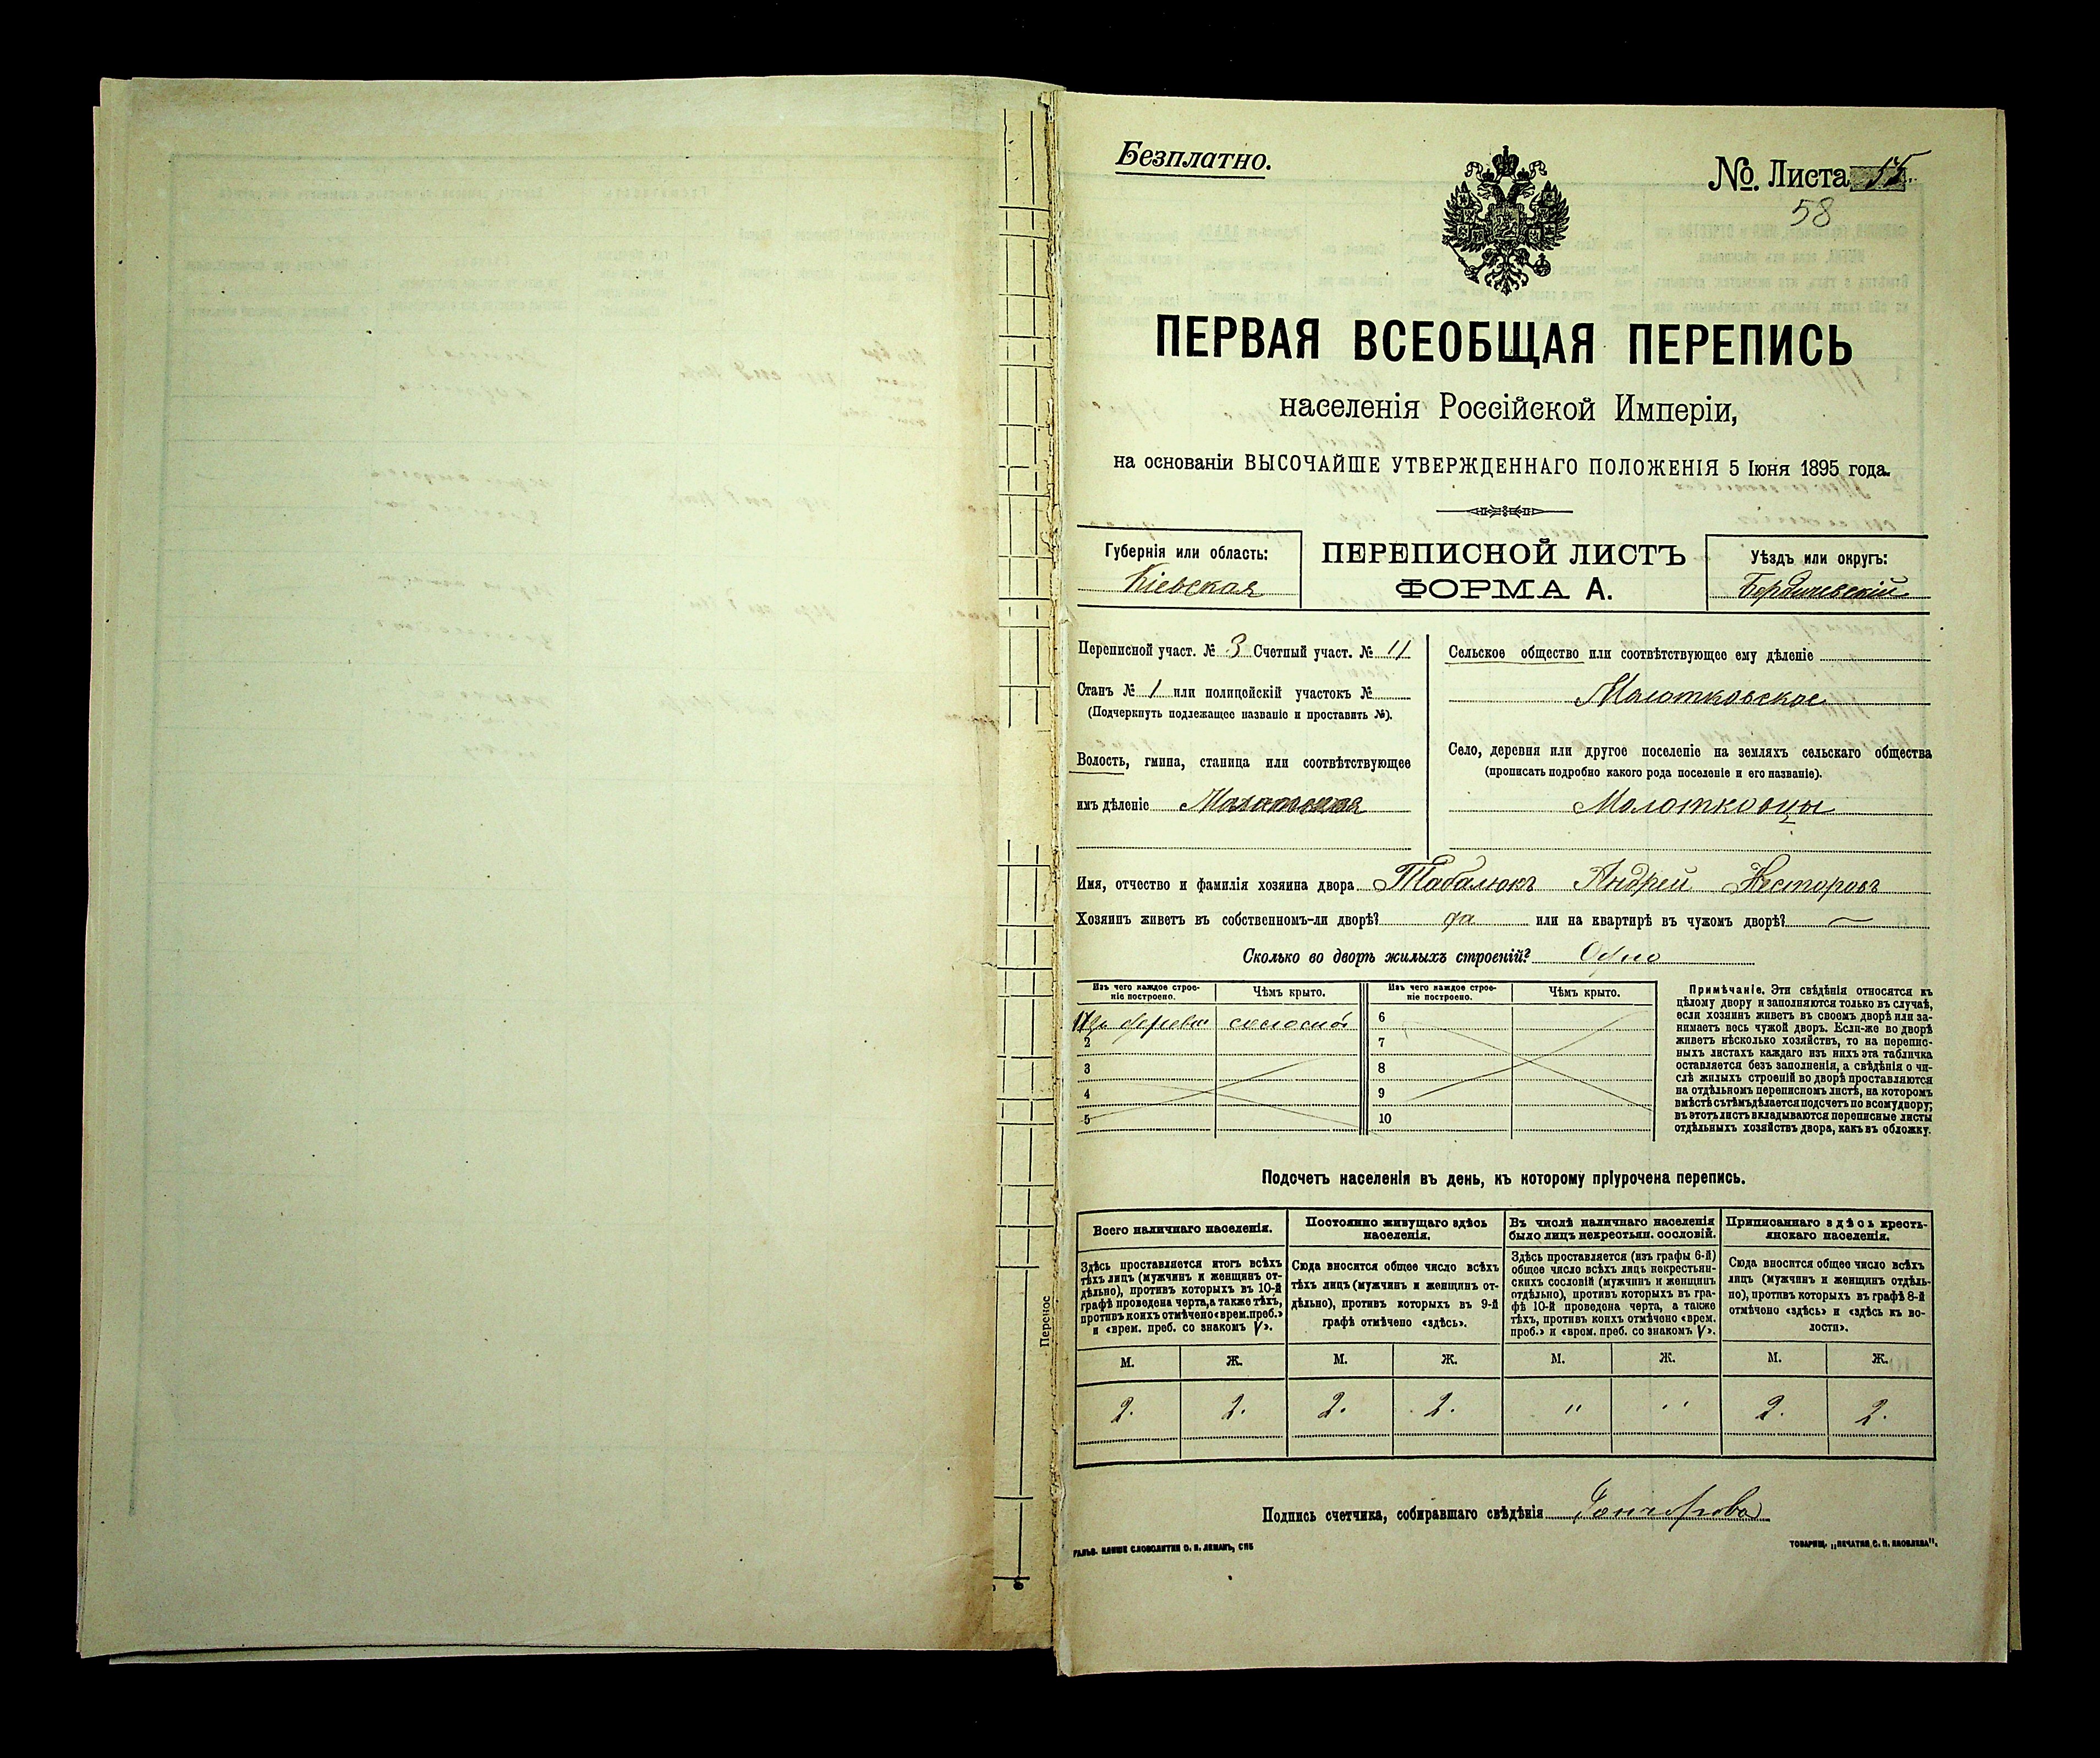 Безплатно.
№ Листа 55.
58
ПЕРВАЯ ВСЕОБЩАЯ ПЕРЕПИСЬ
населенія Россійской Имперіи,
на основаніи ВЫСОЧАЙШЕ УТВЕРЖДЕННАГО ПОЛОЖЕНІЯ 5 Іюня 1895 года.
Губернія или область:
Кіевская
ПЕРЕПИСНОЙ ЛИСТЪ
ФОРМА А.
Уѣздъ или округъ:
Бердичевскій
Переписной участ. № 3 Счетный участ. № 11
Станъ № 1 или полицейскій участокъ №
(Подчеркнуть подлежащее названіе и проставить №).
Волость, гмина, станица или соотвѣтствующее
имъ дѣленіе
Сельское общество или соотвѣтствующее ему дѣленіе
Молотковское
Село, деревня или другое поселеніе на земляхъ сельскаго общества
(прописать подробно какого рода поселеніе и его названіе).
Молотковцы
Имя, отчество и фамилія хозяина двора Табалюкъ Андрей Несторовъ
Хозяинъ живетъ въ собственномъ-ли дворѣ? да или на квартирѣ въ чужомъ дворѣ? —
Сколько во дворѣ жилыхъ строеній? Одно
Изъ чего каждое строе-
ніе построено.
Чѣмъ крыто.
Изъ чего каждое строе-
ніе построено.
Чѣмъ крыто.
1 Изъ дерева соломой
2
3
4
5
6
7
8
9
10
Примѣчаніе. Эти свѣдѣнія относятся къ
цѣлому двору и заполняются только въ случаѣ,
если хозяинъ живетъ въ своемъ дворѣ или за-
нимаетъ весь чужой дворъ. Если-же во дворѣ
живетъ нѣсколько хозяйствъ, то на перепис-
ныхъ листахъ каждаго изъ нихъ эта табличка
оставляется безъ заполненія, а свѣдѣнія о чи-
слѣ жилыхъ строеній во дворѣ проставляются
на отдѣльномъ переписномъ листѣ, на которомъ
вмѣстѣ съ тѣмъ дѣлается подсчетъ по всему двору;
въ этотъ листъ вкладываются переписные листы
отдѣльныхъ хозяйствъ двора, какъ въ обложку.
Подсчетъ населенія въ день, къ которому пріурочена перепись.
Всего наличнаго населенія.
Здѣсь проставляется итогъ всѣхъ
тѣхъ лицъ (мужчинъ и женщинъ от-
дѣльно), противъ которыхъ въ 10-й
графѣ проведена черта, а также тѣхъ,
противъ коихъ отмѣчено «врем. преб.»
и «врем. преб. со знакомъ V».
Постоянно живущаго здѣсь
населенія.
Сюда вносится общее число всѣхъ
тѣхъ лицъ (мужчинъ и женщинъ от-
дѣльно), противъ которыхъ въ 9-й
графѣ отмѣчено «здѣсь».
Въ числѣ наличнаго населенія
было лицъ некрестьян. сословій.
Здѣсь проставляется (изъ графы 6-й)
общее число всѣхъ лицъ некрестьян-
скихъ сословій (мужчинъ и женщинъ
отдѣльно), противъ которыхъ въ гра-
фѣ 10-й проведена черта, а также
тѣхъ, противъ коихъ отмѣчено «врем.
проб.» и «врем. преб. со знакомъ V».
Приписаннаго здѣсь кресть-
янскаго населенія.
Сюда вносится общее число всѣхъ
лицъ (мужчинъ и женщинъ отдѣль-
но), противъ которыхъ въ графѣ 8-й
отмѣчено «здѣсь» и «здѣсь къ во-
лости».
М. Ж. М. Ж. М. Ж. М. Ж.
2. 2. 2. 2. " " 2. 2.
Подпись счетчика, собиравшаго свѣдѣнія
ГАЛЬВ. КЛИШЕ СЛОВОЛИТНИ О. И. ЛЕМАНЪ, СПБ
ТОВАРИЩ. „ПЕЧАТНЯ С. П. ЯКОВЛЕВА".
Переносъ